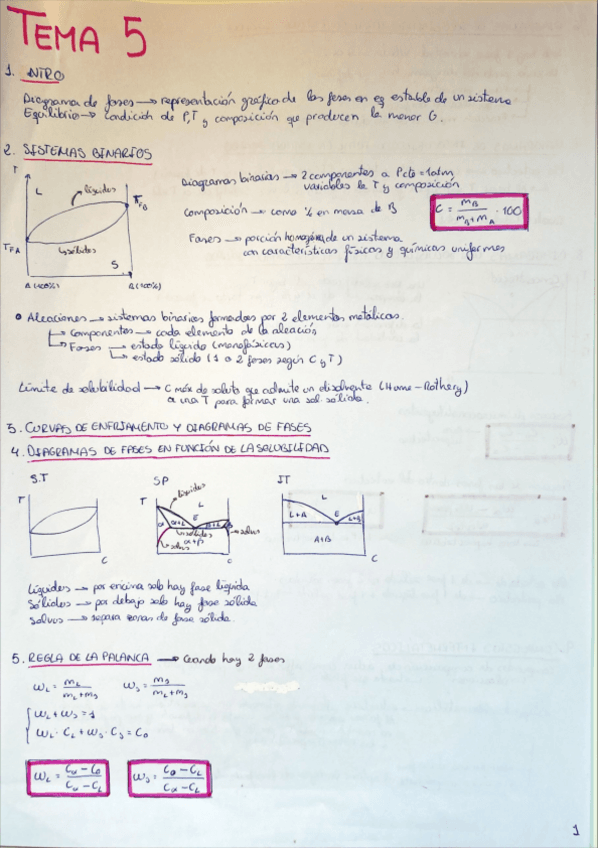 TEMA 5
1. INTRO
Diagrama de fases → representación gráfica de las fases en eq estable de un sistema
Equilibrio → condición de P,T y composición que producen la menor G.
2. SISTEMAS BINARIOS
T
L
líquidus
TFB
TFA
sólidus
S
A (100%)
B (100%)
Diagramas binarios → 2 componentes a Pcte = 1atm
variables la T y composición
Composición → como % en masa de B
C = mB / (mB + mA) · 100
Fases → porción homogénea de un sistema
con características físicas y químicas uniformes
• Aleaciones → sistemas binarios formados por 2 elementos metálicos.
Componentes → cada elemento de la aleación
Fases → estado líquido (monofásicos)
estado sólido (1 o 2 fases según C y T)
Límite de solubilidad → C máx de soluto que admite un disolvente (Hume-Rothery)
a una T para formar una sol sólida.
3. CURVAS DE ENFRIAMIENTO Y DIAGRAMAS DE FASES
4. DIAGRAMAS DE FASES EN FUNCIÓN DE LA SOLUBILIDAD
S.T
T
C
SP
T
líquidus
L
α
α+L
E
β+L
sólidus
α+β
solvus
solvus
C
IT
L
L+A
E
L+B
A+B
C
Líquidus → por encima solo hay fase líquida
Sólidus → por debajo solo hay fase sólida
Solvus → separa zonas de fase sólida.
5. REGLA DE LA PALANCA → Cuando hay 2 fases
WL = mL / (mL + mS)
WS = mS / (mL + mS)
WL + WS = 1
WL · CL + WS · CS = C0
WL = (Cα - C0) / (Cα - CL)
WS = (C0 - CL) / (Cα - CL)
1